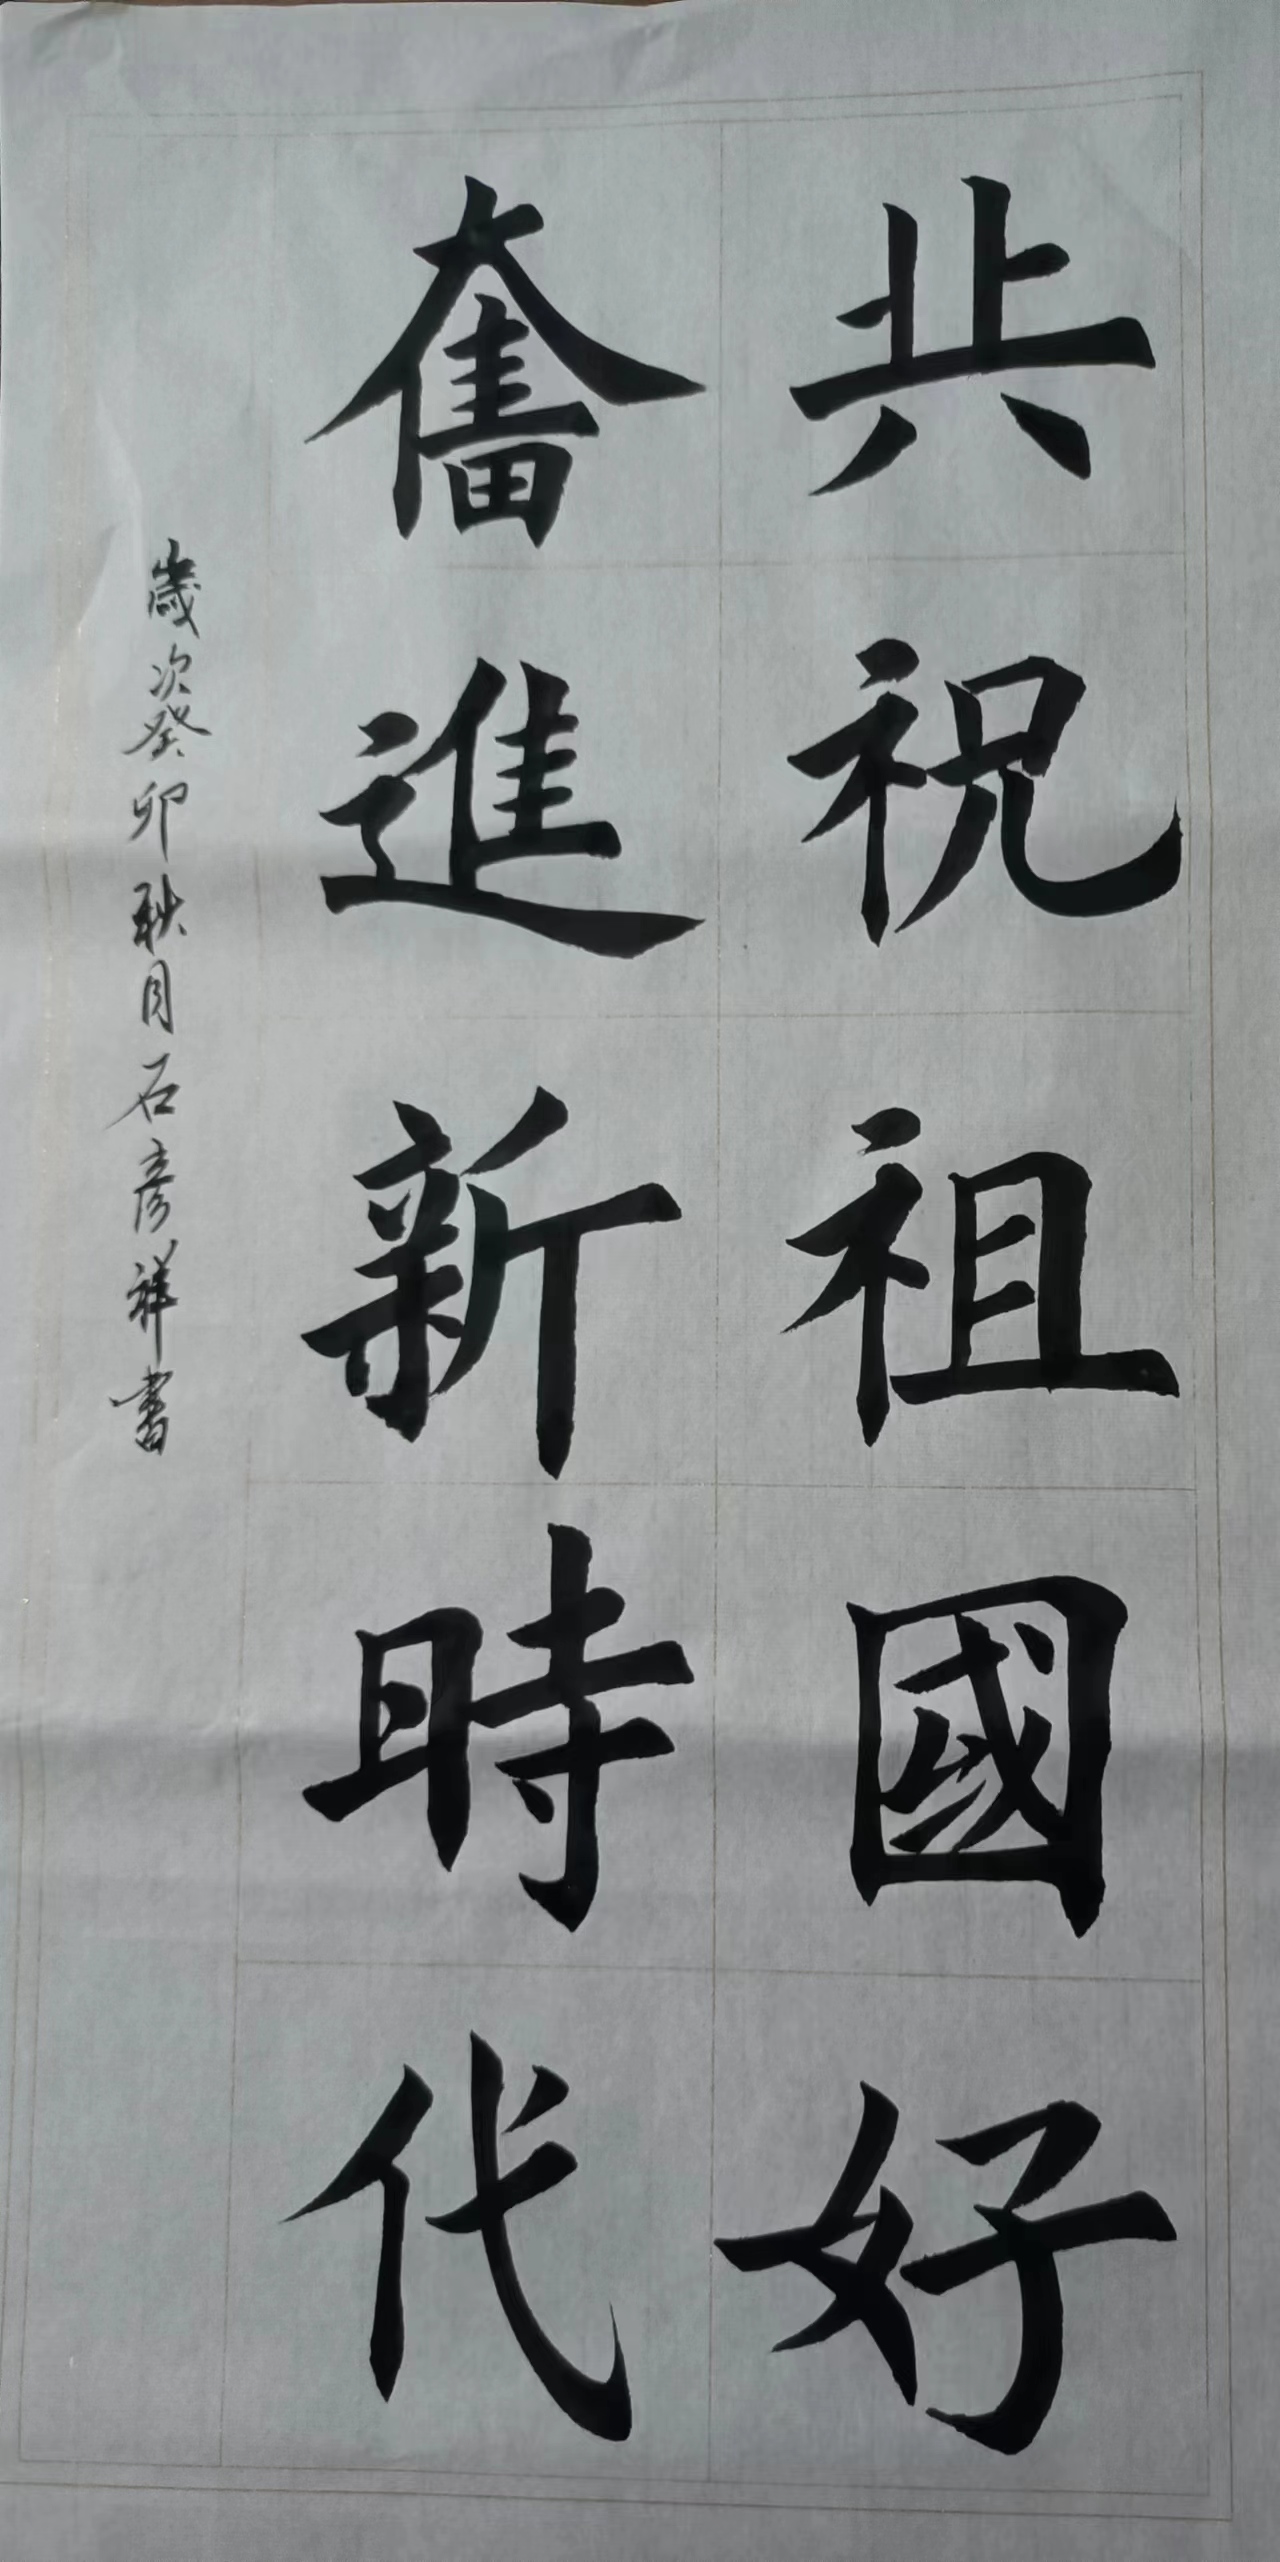 共祝祖國好
奮進新時代
歲次癸卯秋月石彥祥書